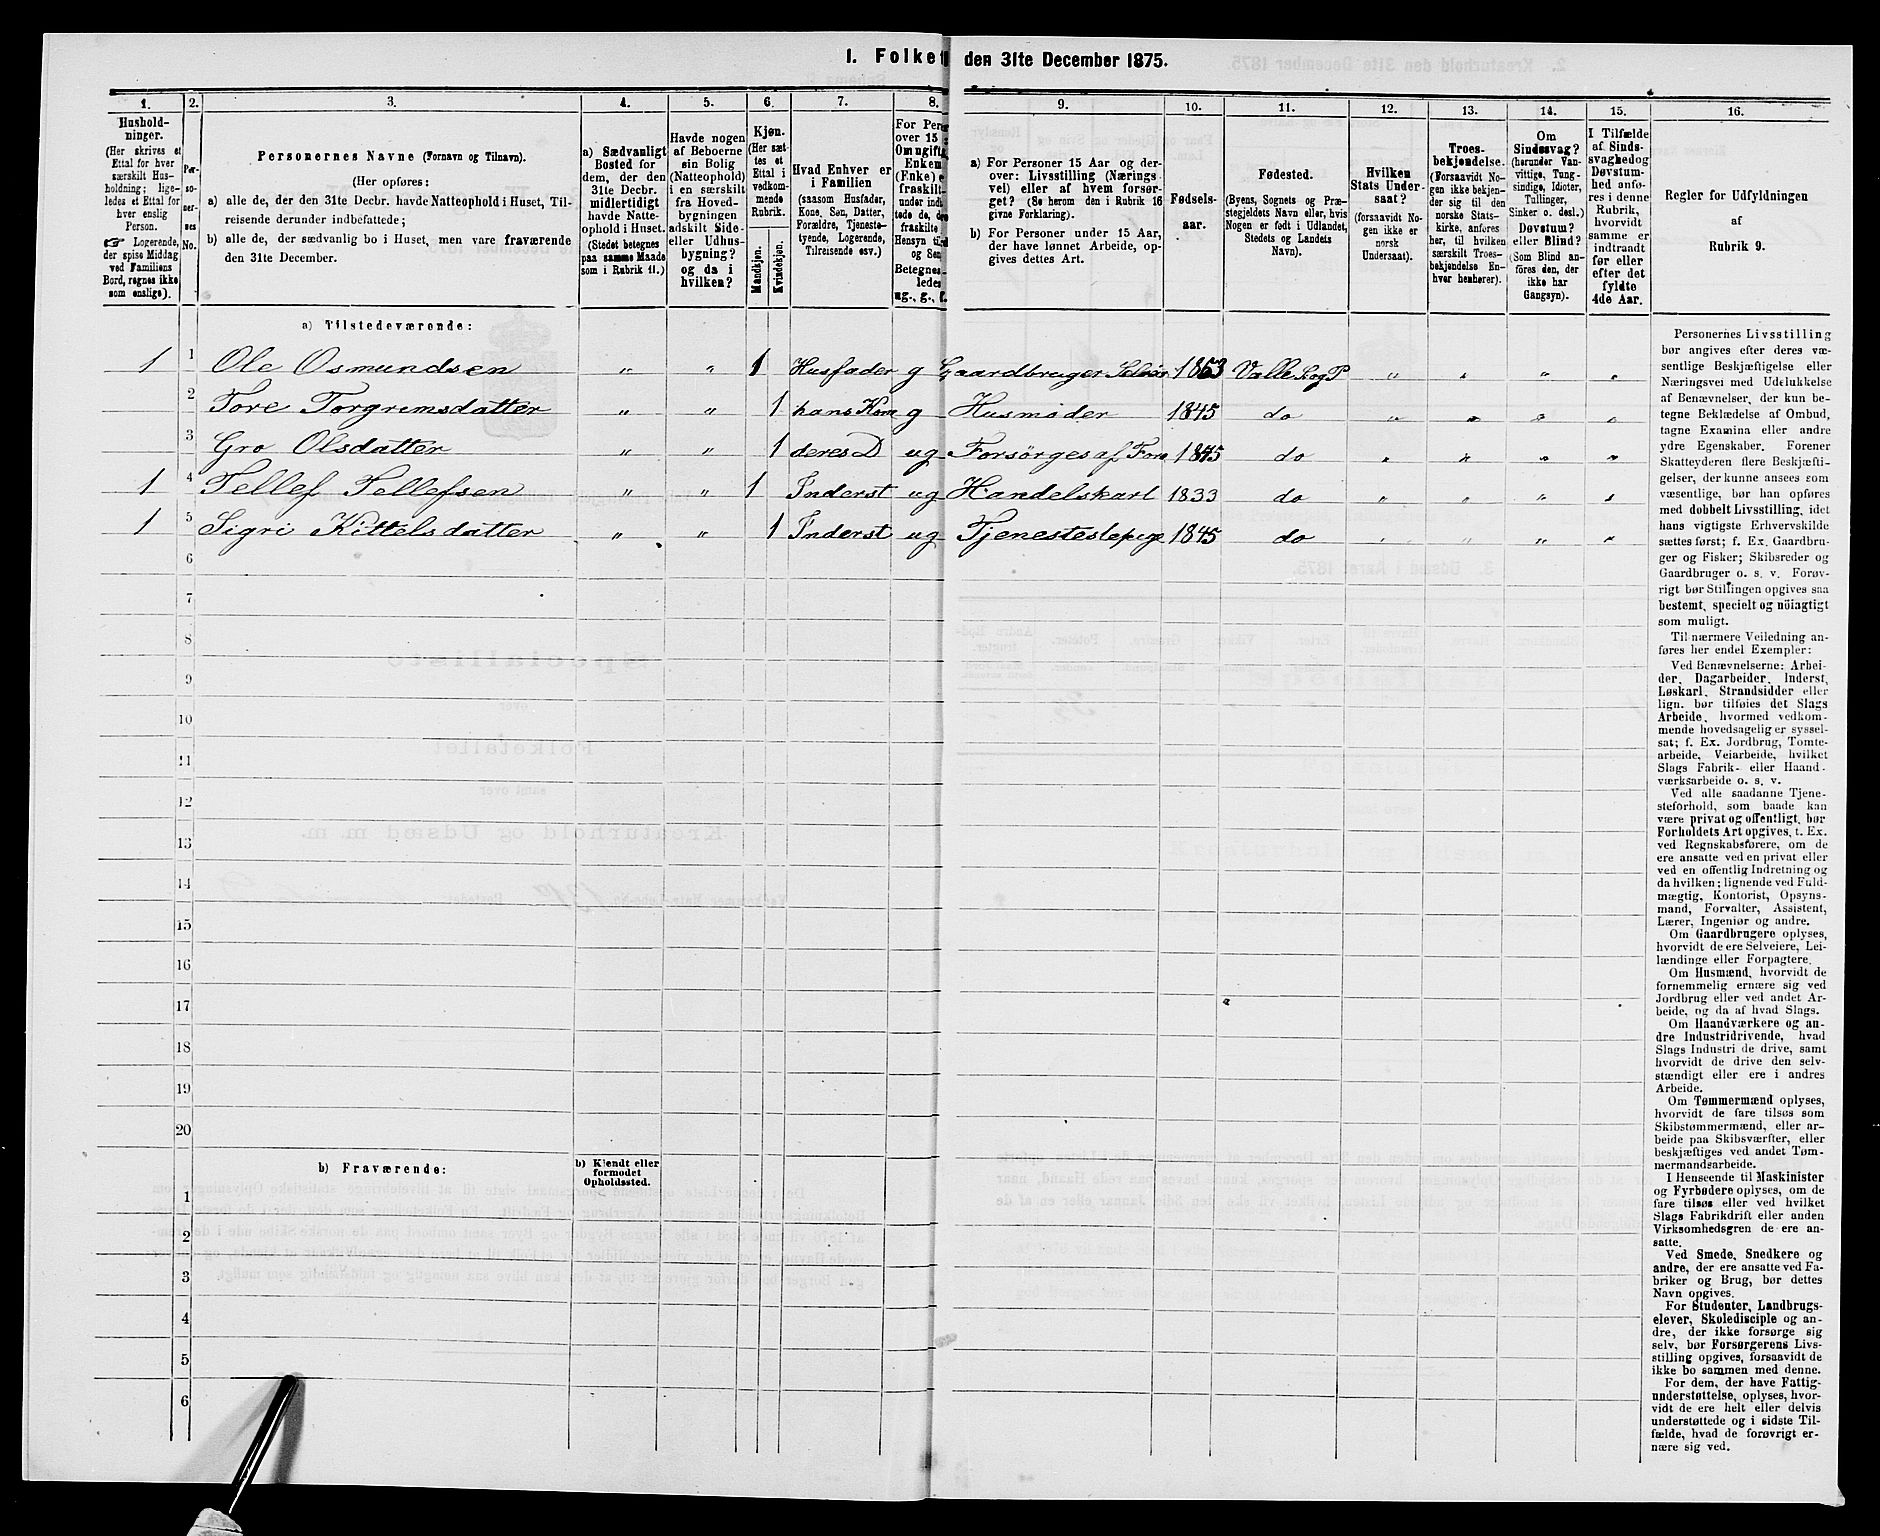 1. Folket den 31te December 1875.
1. 2. 3. 4. 5. 6. 7. 8. 9. 10. 11. 12. 13. 14. 15. 16.
Hushold-
ninger.
(Her skrives et
Ettal for hver
særskilt Hus-
holdning; lige-
ledes et Ettal for
hver enslig
Person.
☞ Logerende,
der spise Middag
ved Familiens
Bord, regnes ikke
som enslige).
Per-
so-
ner-
nes
No.
Personernes Navne (Fornavn og Tilnavn).
(Her opføres:
a) alle de, der den 31te Decbr. havde Natteophold i Huset, Til-
reisende derunder indbefattede;
b) alle de, der sædvanlig bo i Huset, men vare fraværende
den 31te December.
a) Sædvanligt
Bosted for
dem, der den
31te Decbr.
midlertidigt
havde Natte-
ophold i Huset.
(Stedet betegnes
paa samme Maade
som i Rubrik 11.)
Havde nogen
af Beboerne
sin Bolig
(Natteophold)
i en særskilt
fra Hoved-
bygningen
adskilt Side-
eller Udhus-
bygning?
og da i
hvilken?
Kjøn.
(Her sæt-
tes et
Ettal i
vedkom-
mende
Rubrik.
Mandkjøn.
Kvindekjøn.
Hvad Enhver er
i Familien
(saasom Husfader,
Kone, Søn, Datter,
Forældre, Tjeneste-
tyende, Logerende,
Tilreisende osv.)
For Pers
over 15
Om ugift
Enken
(Enke)
fraskilt
under indt
tede de, der
fraskilte
Hensyn til
og Sen
Betegnes
ledes
ug., g.,
a) For Personer 15 Aar og der-
over: Livsstilling (Nærings-
vei) eller af hvem forsør-
get? (Se herom den i Rubrik 16
givne Forklaring).
b) For Personer under 15 Aar,
der have lønnet Arbeide, op-
gives dettes Art.
Fødsels-
aar.
Fødested.
(Byens, Sognets og Præ-
stegjeldets Navn eller, hvis
Nogen er født i Udlandet,
Stedets og Landets
Navn).
Hvilken
Stats Under-
saat?
(forsaavidt No-
gen ikke er
norsk
Undersaat).
Troes-
bekjendelse.
(Forsaavidt No-
gen ikke bekjen-
der sig til den
norske Stats-
kirke, anføres
her, til hvilken
særskilt Troes-
bekjendelse En-
hver henhører).
Om
Sindssvag?
(herunder Van-
vittige, Tung-
sindige, Idioter,
Tullinger,
Sinker o. desl.)
Døvstum?
eller Blind?
(Som Blind an-
føres den, der
ikke har
Gangsyn).
I Tilfælde
af Sinds-
svaghed og
Døvstum-
hed anfø-
res i denne
Rubrik,
hvorvidt
samme er
indtraadt
før eller
efter det
fyldte
4de Aar.
Regler for Udfyldningen
af
Rubrik 9.
a) Tilstedeværende:
1 1 Ole Osmundsen " " 1 Husfader g Gaardbruger Selveier 1853 Valle S og P " " " "
2 Tore Torgrimsdatter " " 1 hans Kone g Husmoder 1845 do " " " "
3 Gro Olsdatter " " 1 deres D ug Forsörges af For 1875 do " " " "
1 4 Tellef Tellefsen " " 1 Inderst ug Handelskarl 1833 do " " " "
1 5 Sigri Kittelsdatter " " 1 Inderst ug Tjenestepige 1845 do " " " "
6
7
8
9
10
11
12
13
14
15
16
17
18
19
20
b) Fraværende:
b) Kjendt eller
formodet
Opholdssted.
1
2
3
4
5
6
Personernes Livsstilling
bør angives efter deres væ-
sentlige Beskjæftigelse eller
Næringsvei med Udelukkelse
af Benævnelser, der kun be-
tegne Beklædelse af Ombud,
tagne Examina eller andre
ydre Egenskaber. Forener
Skatteyderen flere Beskjæfti-
gelser, der kunne ansees som
væsentlige, bør han opføres
med dobbelt Livsstilling, idet
hans vigtigste Erhvervskilde
sættes først; f. Ex. Gaardbru-
ger og Fisker; Skibsreder og
Gaardbruger o. s. v. Forøv-
rigt bør Stillingen opgives saa
bestemt, specielt og nöiagtigt
som muligt.
Til nærmere Veiledning an-
føres her endel Exempler:
Ved Benævnelserne: Arbei-
der, Dagarbeider, Inderst,
Løskarl, Strandsidder eller
lign. bør tilføies det Slags
Arbeide, hvormed vedkom-
mende hovedsagelig er syssel-
sat; f. Ex. Jordbrug, Tomte-
arbeide, Veiarbeide, hvilket
Slags Fabrik- eller Haand-
værksarbeide o. s. v.
Ved alle saadanne Tjene-
steforhold, som baade kan
være privat og offentligt, bør
Forholdets Art opgives, t. Ex.
ved Regnskabsførere, om de
ere ansatte ved en privat eller
ved en offentlig Indretning og
da hvilken; lignende ved Fuld-
mægtig, Kontorist, Opsyns-
mand, Forvalter, Assistent,
Lærer, Ingeniør og andre.
Om Gaardbrugere oplyses,
hvorvidt de ere Selveiere, Lei-
lændinge eller Forpagtere.
Om Husmænd, hvorvidt de
fornemmelig ernære sig ved
Jordbrug eller ved andet Ar-
beide, og da af hvad Slags.
Om Haandværkere og an-
dre Industridrivende, hvad
Slags Industri de drive, samt
hvorvidt de drive den selv-
stændigt eller ere i andres
Arbeide.
Om Tømmermænd oplyses,
hvorvidt de fare tilsøs som
Skibstømmermænd, eller ar-
beide paa Skibsværfter, eller
beskjæftiges ved andet Tøm-
mermandsarbeide.
I Henseende til Maskinister
og Fyrbødere oplyses, om de
fare tilsøs eller ved hvilket
Slags Fabrikdrift eller anden
Virksomhedsgren de ere an-
satte.
Ved Smede, Snedkere og
andre, der ere ansatte ved Fa-
briker og Brug, bør dettes
Navn opgives.
For Studenter, Landbrugs-
elever, Skoledisciple og an-
dre, der ikke forsørge sig
selv, bør Forsørgerens Livs-
stilling opgives, forsaavidt de
ikke bo sammen med denne.
For dem, der have Fattig-
understøttelse, oplyses, hvor-
vidt de ere helt eller delvis
understøttede og i sidste Til-
fælde, hvad de forøvrigt er-
nære sig ved.